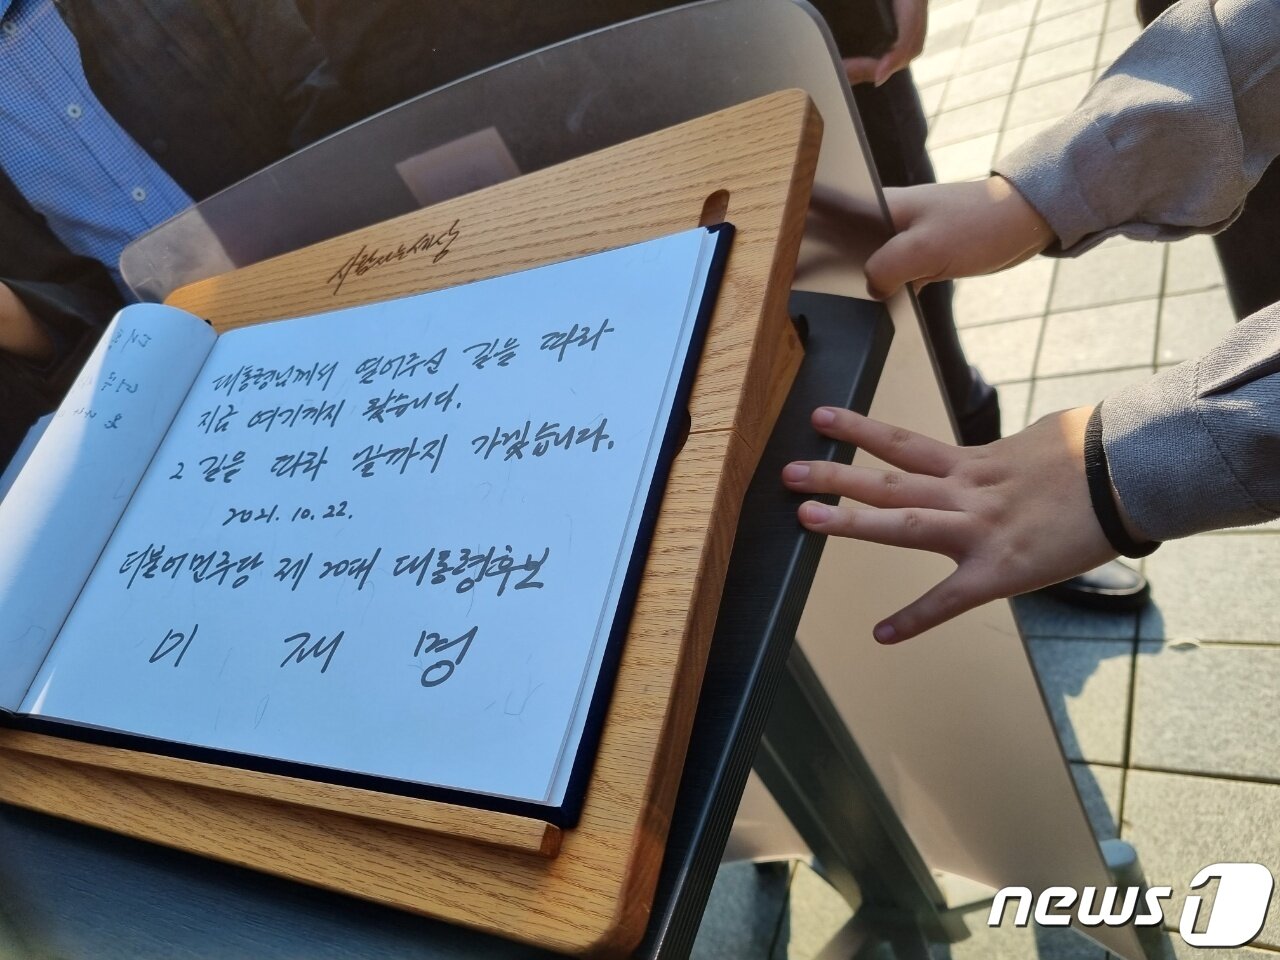 사람사는세상
대통령님께서 열어주신 길을 따라
지금 여기까지 왔습니다.
그 길을 따라 끝까지 가겠습니다.
2021. 10. 22.
더불어민주당 제20대 대통령후보
이 재 명
news1